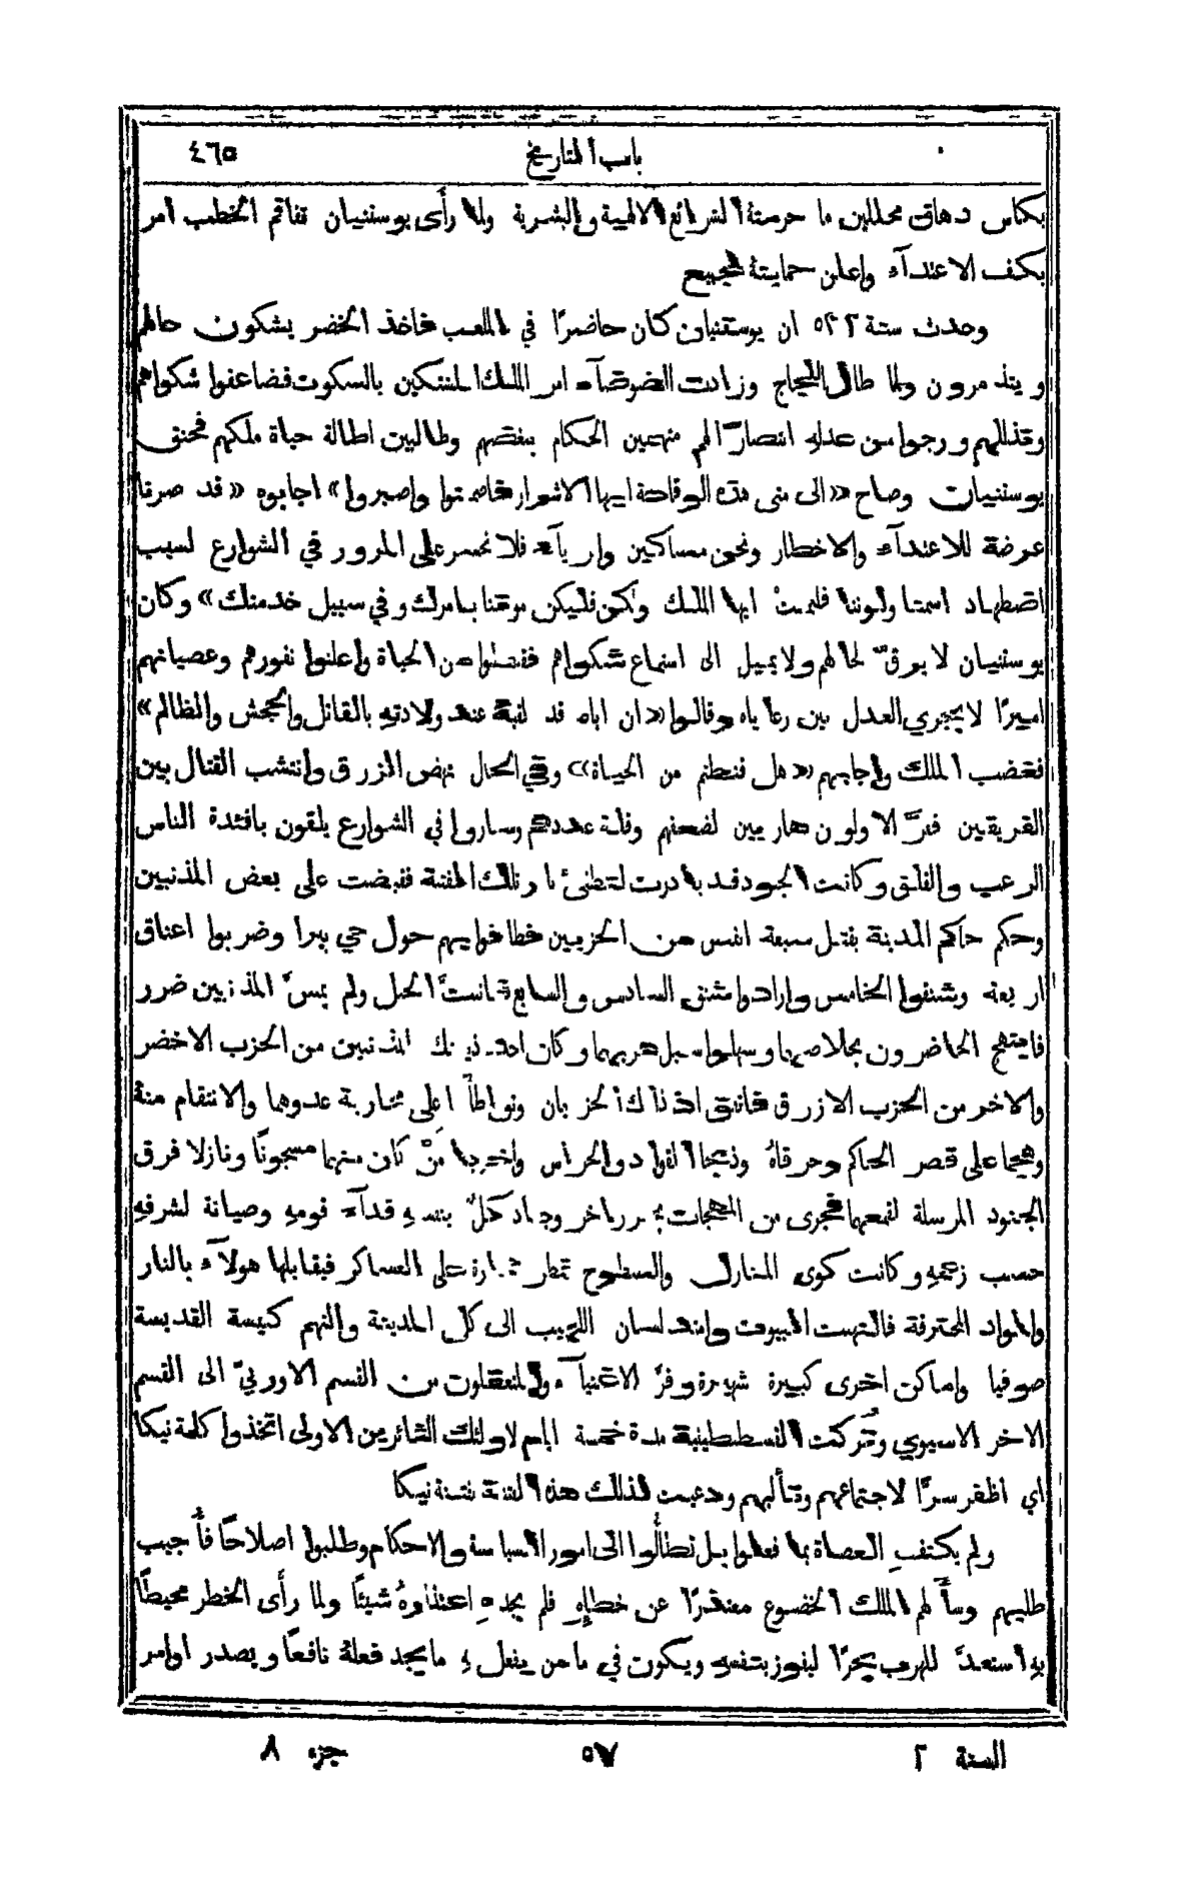 باب التاريخ ٤٦٥
بكاس دهاق محللين ما حرمته الشرائع الالهية والبشرية ولما رأى يوستنيان تفاقم الخطب امر
بكف الاعتدآء واعلن حمايته للجميع
وحدث سنة ٥٣٢ ان يوستنيان كان حاضرًا في الملعب فاخذ الخضر يشكون حالهم
ويتذمرون ولما طال اللجاج وزادت الضوضآء امر الملك المشتكين بالسكوت فضاعفوا شكواهم
وتذللهم ورجوا من عدله انتصارًا لهم متهمين الحكام ببغضهم وطالبين اطالة حياة ملكهم فحنق
يوستنيان وصاح «الى متى هذه الوقاحة ايها الاشرار فاصمتوا واصبروا» اجابوه «قد صرنا
عرضة للاعتدآء والاخطار ونحن مساكين وابريآء فلا نجسر على المرور في الشوارع لسبب
اضطهاد اسمنا ولوننا فلنمت ايها الملك ولكن فليكن موتنا بامرك وفي سبيل خدمتك» وكان
يوستنيان لا يرقّ لحالهم ولا يميل الى استماع شكواهم فقنطوا من الحياة واعلنوا نفورهم وعصيانهم
اميرًا لا يجري العدل بين رعاياه وقالوا «ان اباه قد لقبه عند ولادته بالقاتل والجحش والظالم»
فغضب الملك واجابهم «هل قنطتم من الحياة» وفي الحال نهض الزرق وانتشب القتال بين
الفريقين ففرّ الاولون هاربين لضعفهم وقلة عددهم وساروا في الشوارع يلقون بافئدة الناس
الرعب والقلق وكانت الجنود قد بادرت لتطفئ نار تلك الفتنة فقبضت على بعض المذنبين
وحكم حاكم المدينة بقتل سبعة انفس من الحزبين فطافوا بهم حول حي بيرا وضربوا اعناق
اربعة وشنقوا الخامس وارادوا شنق السادس والسابع فانبتّ الحبل ولم يمسّ المذنبين ضرر
فابتهج الحاضرون بخلاصهما وسهلوا سبل هربهما وكان احد ذينك المذنبين من الحزب الاخضر
والاخر من الحزب الازرق فاتفق اذ ذاك الحزبان وتواطأَا على محاربة عدوهما والانتقام منه
وهجما على قصر الحاكم وحرقاهُ وذبحا القواد والحراس واخرجا مَنْ كان منهما مسجونًا ونازلا فرق
الجنود المرسلة لقمعهما فجرى من المهجات بحر زاخر وجاد كلٌّ بنفسهِ فدآء قومهِ وصيانة لشرفهِ
حسب زعمهِ وكانت كوى المنازل والسطوح تمطر حجارة على العساكر فيقابلها هولآء بالنار
والمواد المحترقة فالتهبت البيوت وامتد لسان اللهيب الى كل المدينة والتهم كنيسة القديسة
صوفيا واماكن اخرى كبيرة شهيرة وفرّ الاغنيآء والمتعقلون من القسم الاوربيّ الى القسم
الاخر الاسيوي وتُركت القسطنطينية مدة خمسة ايام لاولئك الثائرين الاولى اتخذوا كلمة نيكا
اي اظفر سرًّا لاجتماعهم وتألبهم ودعيت لذلك هذه الفتنة فتنة نيكا
ولم يكتفِ العصاة بما فعلوا بل تطالُّوا الى امور السياسة والاحكام وطلبوا اصلاحًا فأُجيب
طلبهم وسأَلهم الملك الخضوع معتذرًا عن خطإِهِ فلم يجدهِ اعتذارهُ شيئًا ولما رأى الخطر محيطًا
بهِ استعدَّ للهرب بحرًا ليفوز بنفسهِ ويكون في مامن يفعل بهِ ما يجد فعلهُ نافعًا ويصدر اوامر
السنة ٢ ٥٧ جزء ٨